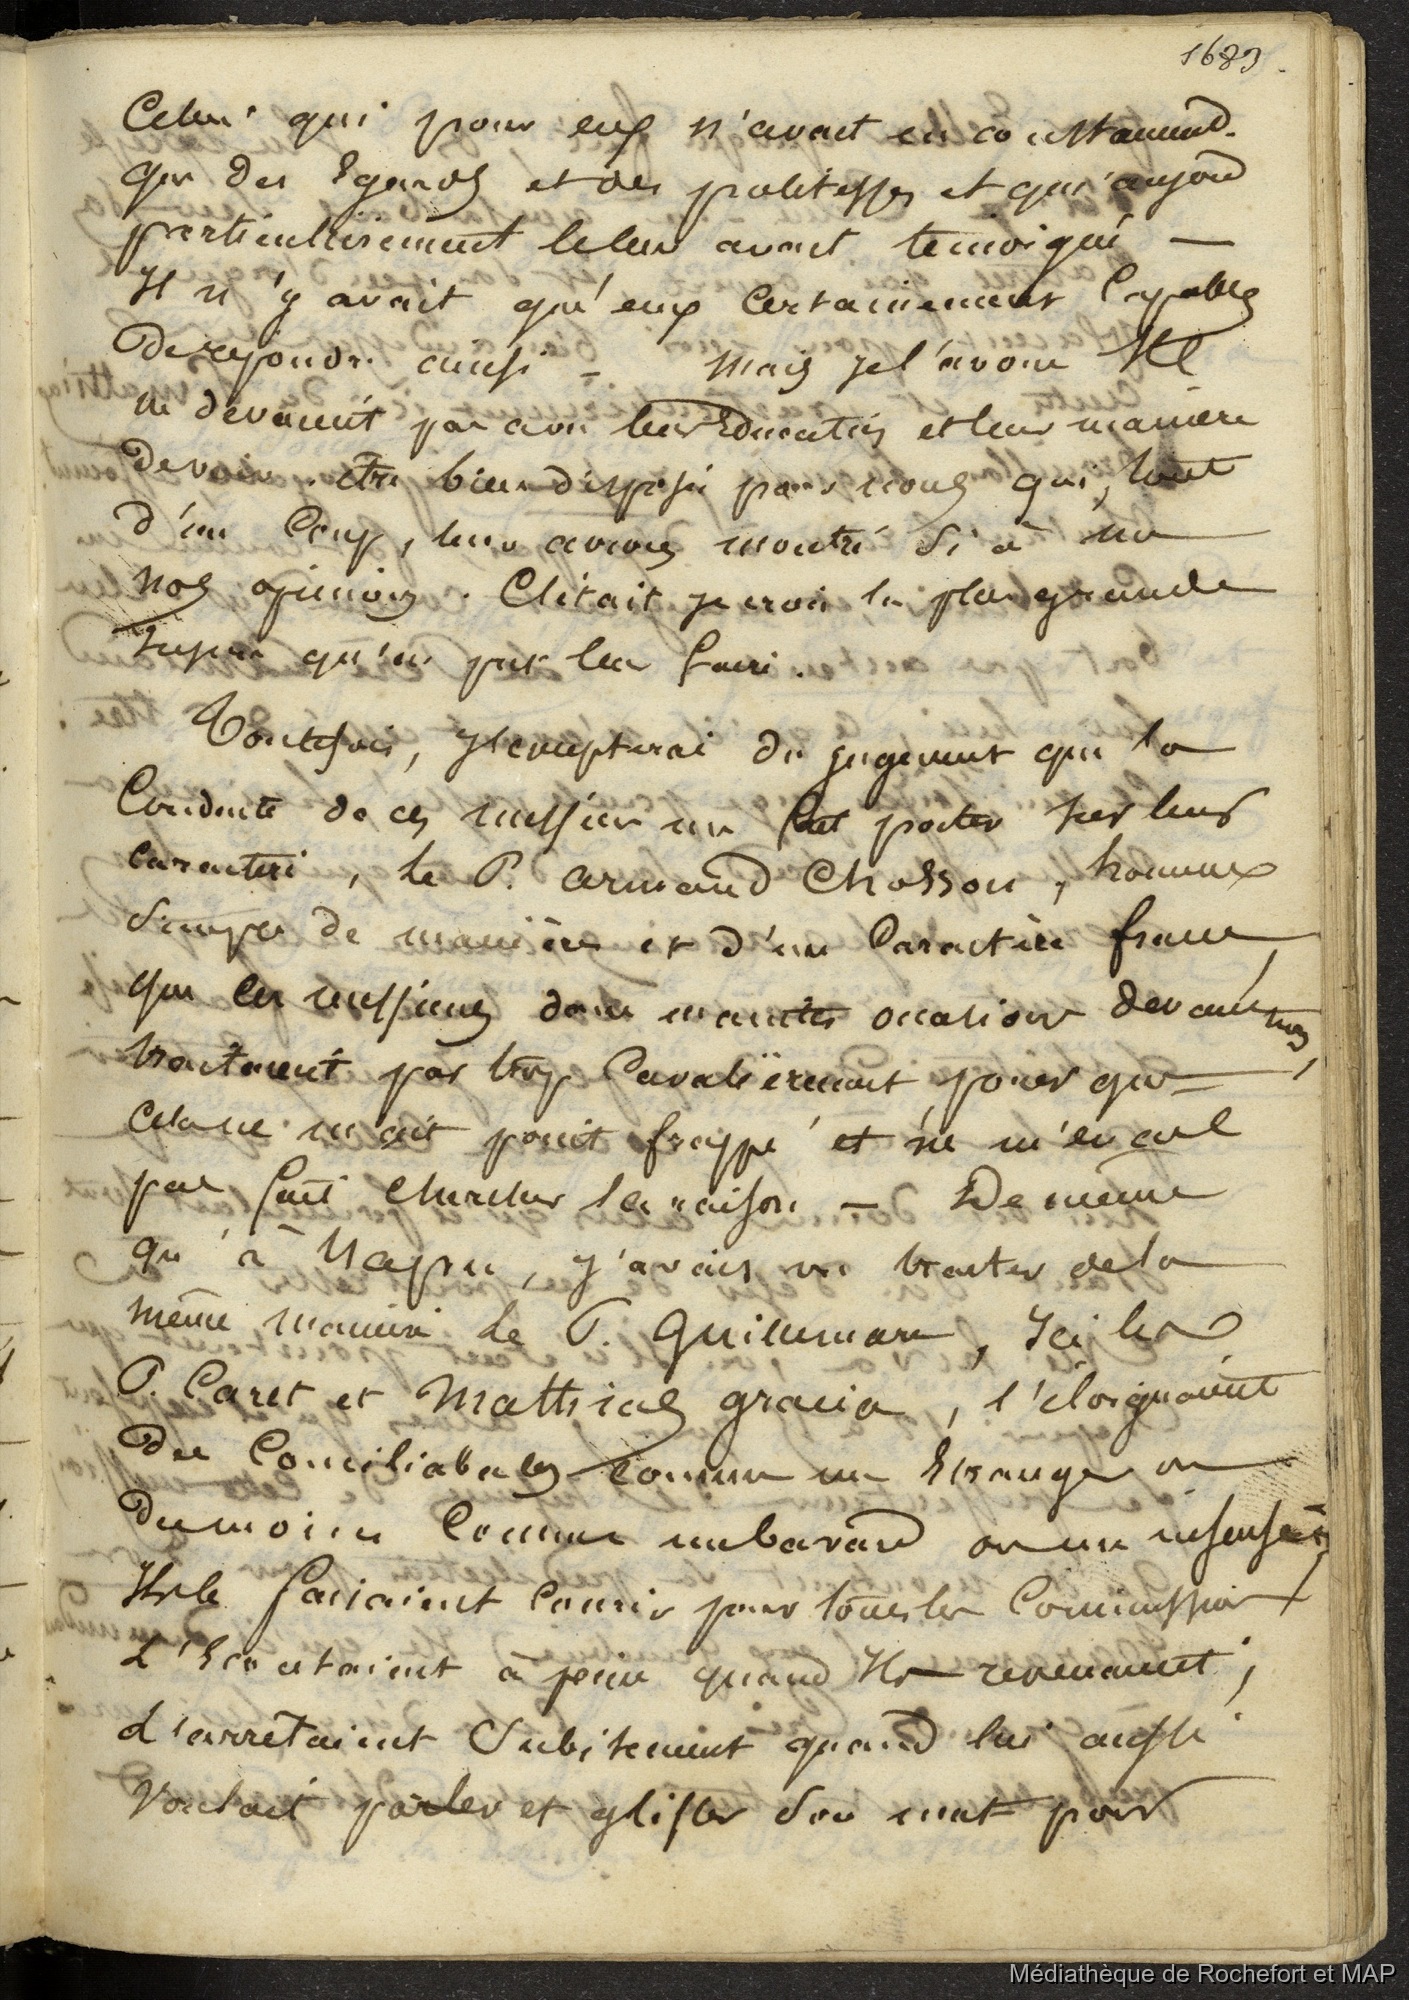 1683.
Celui qui pour eux n'avait eu constamment
que des Egards et des politesses et qui
particulièrement le leur avait temoigné —
Il n'y avait qu'eux Certainement Capables
de repondre ainsi — Mais je l'avoue Ils
ne devaient pas avec leur Education et leur maniere
de voir être bien disposé pour nous qui, tout
d'un Coup, leur avions montré si à nu
nos opinions. C'était je crois la plus grande
qu'on put leur faire.
Toutefois, J'excepterai du jugement que la
Conduite de ces messieurs me fait porter sur leur
caractere, le P. armand Chosson, homme
Simple de manière et d'un Caractère franc,
que ces messieurs dans maintes occasions devant nous,
traitaient par trop Cavalièrement pour que
cela ne m'ait point frappé et ne m'en ait
pas fait chercher la raison — De même
qu'à j'avais vu traiter de la
même manière le P. Guillemard, Ici les
P. Caret et Matthias gracia, l'éloignaient
des Conciliabules comme un Etranger ou
du moins Comme un bavard ou un insensé.
Ils le faisaient Courir pour toutes les Commissions
L'Ecoutaient à peine quand Ils revenaient;
L'arretaient Subitement quand lui aussi
Voulait parler et glisser son mot pour
Médiathèque de Rochefort et MAP